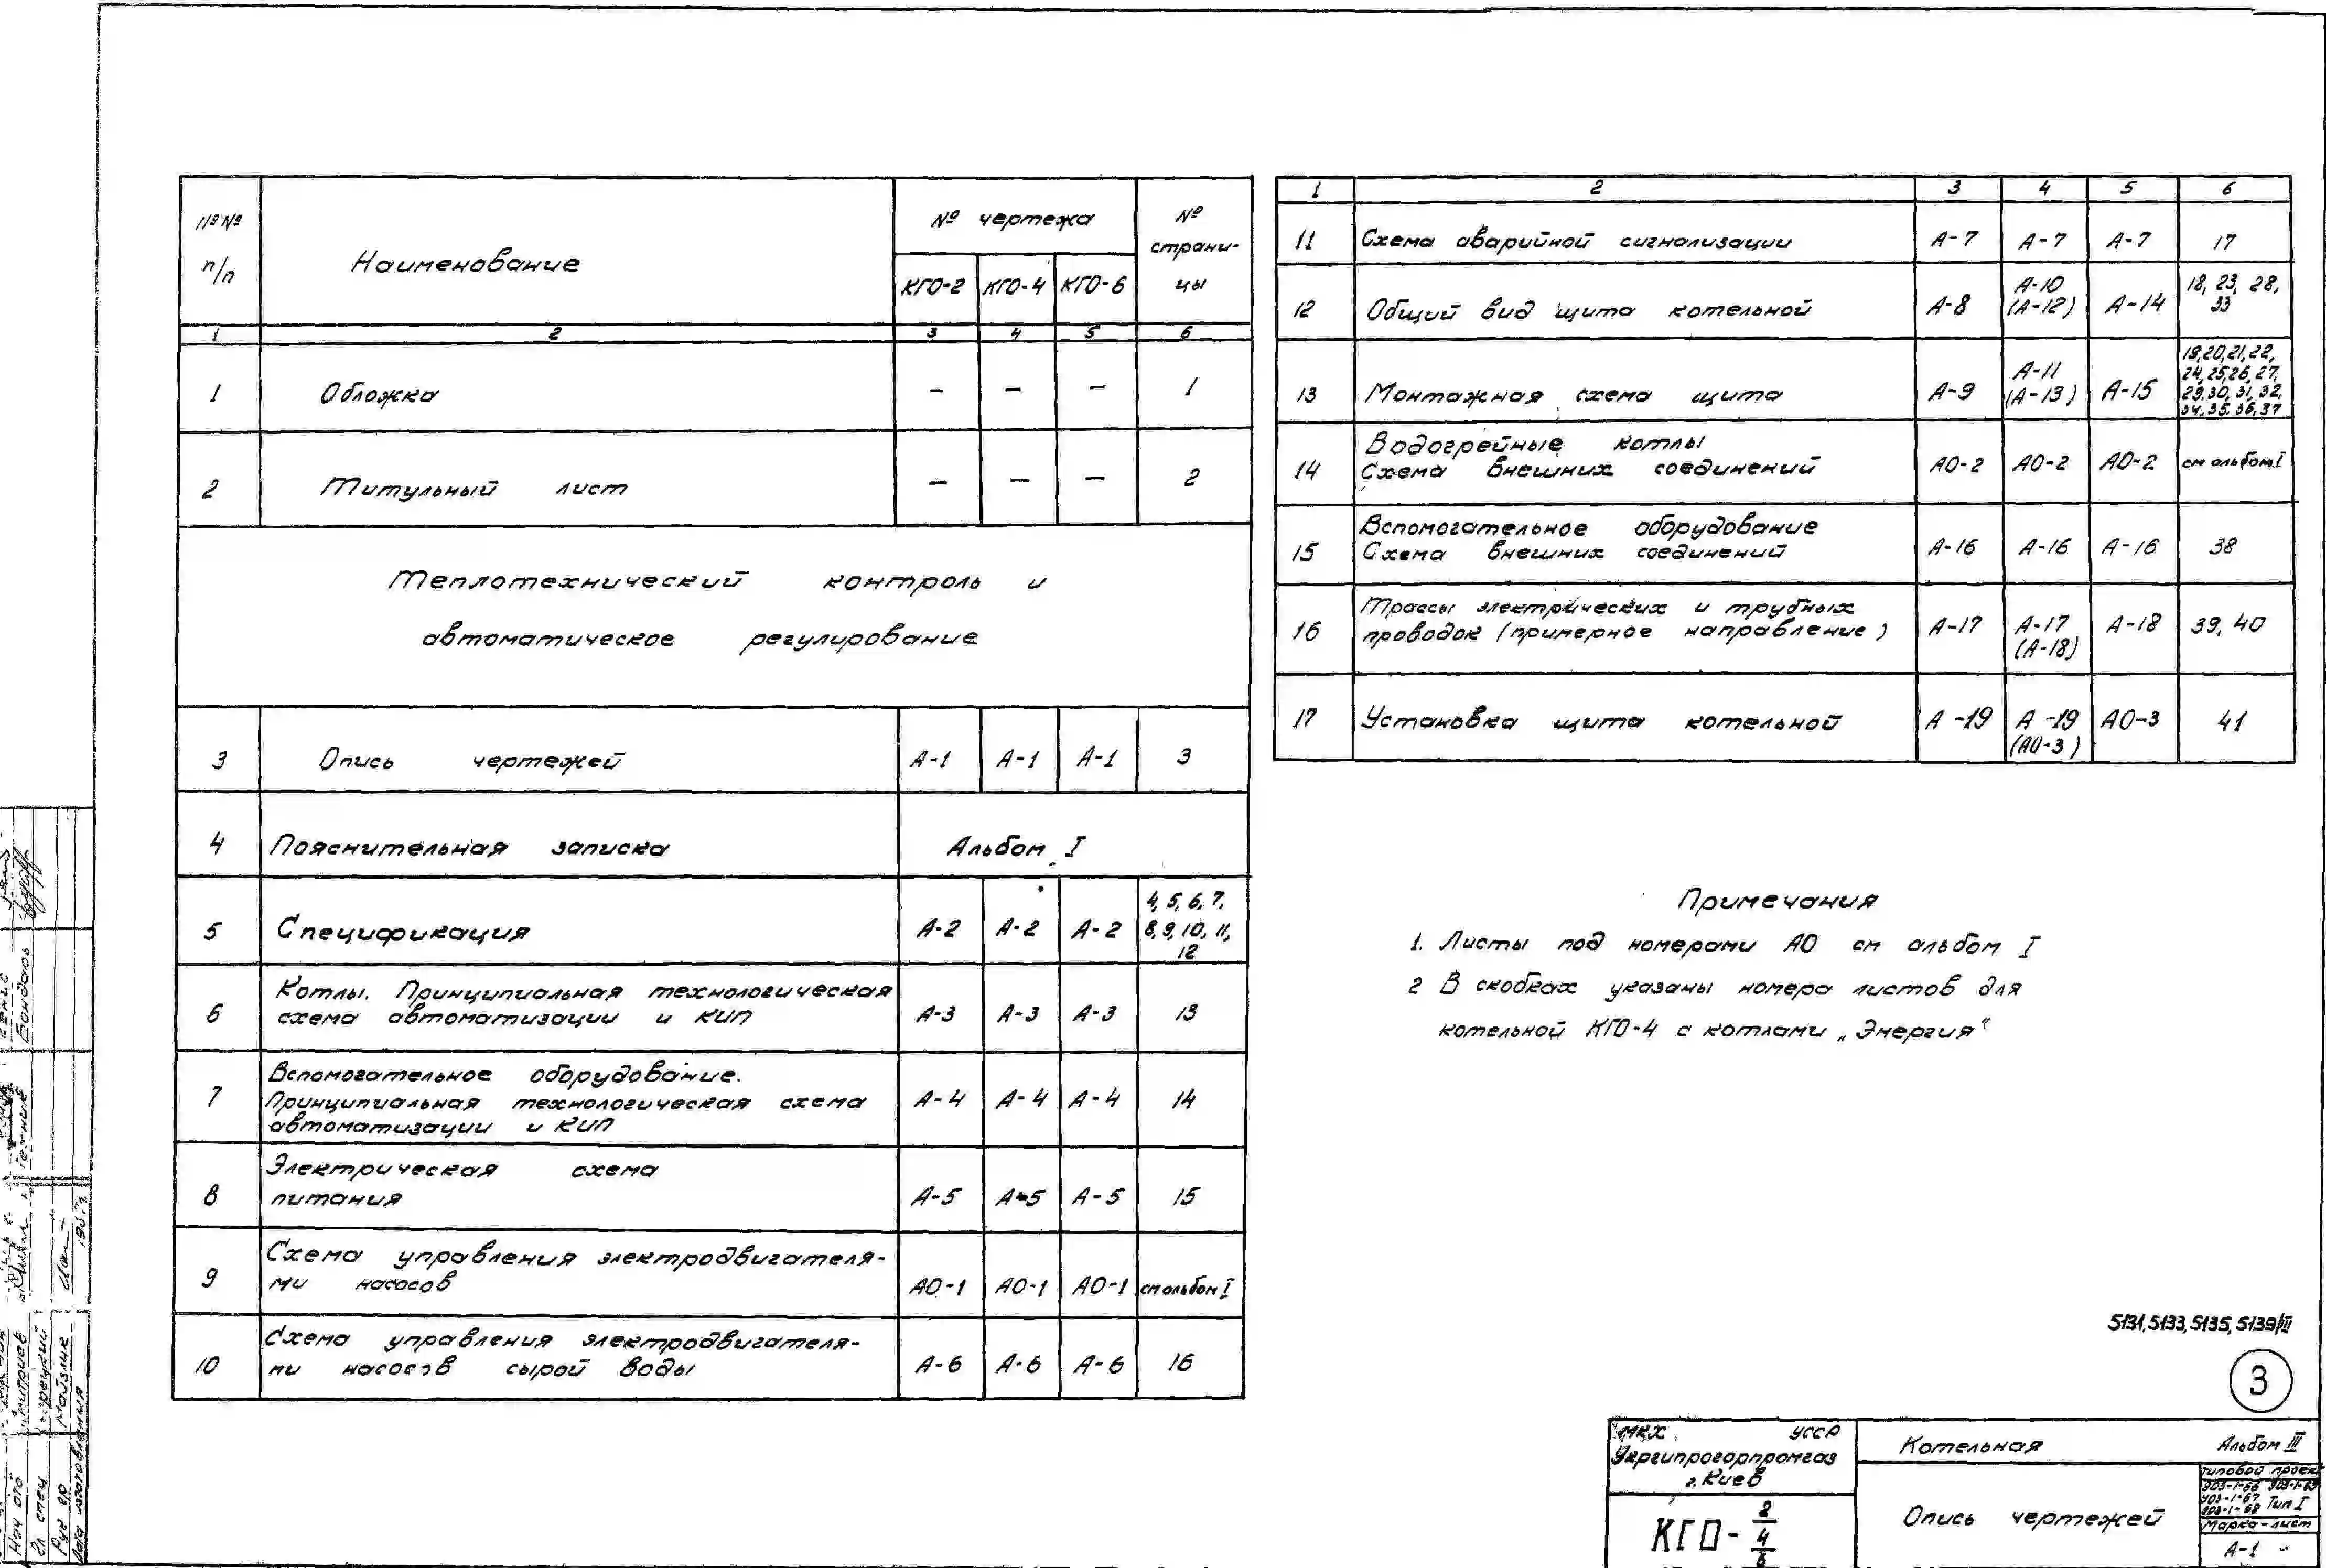 №№ п/п
Наименование
№ чертежа
№ страни-
цы
КГО-2 КГО-4 КГО-6
1 2 3 4 5 6
1 Обложка – – – 1
2 Титульный лист – – – 2
Теплотехнический контроль и
автоматическое регулирование
3 Опись чертежей А-1 А-1 А-1 3
4 Пояснительная записка Альбом I
5 Спецификация А-2 А-2 А-2 4, 5, 6, 7,
8, 9, 10, 11,
12
6 Котлы. Принципиальная технологическая
схема автоматизации и КИП А-3 А-3 А-3 13
7 Вспомогательное оборудование.
Принципиальная технологическая схема
автоматизации и КИП А-4 А-4 А-4 14
8 Электрическая схема
питания А-5 А-5 А-5 15
9 Схема управления электродвигателя-
ми насосов АО-1 АО-1 АО-1 см альбом I
10 Схема управления электродвигателя-
ми насосов сырой воды А-6 А-6 А-6 16
1 2 3 4 5 6
11 Схема аварийной сигнализации А-7 А-7 А-7 17
12 Общий вид щита котельной А-8 А-10
(А-12) А-14 18, 23, 28,
33
13 Монтажная схема щита А-9 А-11
(А-13) А-15 19,20,21,22,
24,25,26,27,
29,30,31,32,
34,35,36,37
14 Водогрейные котлы
Схема внешних соединений АО-2 АО-2 АО-2 см альбом I
15 Вспомогательное оборудование
Схема внешних соединений А-16 А-16 А-16 38
16 Трассы электрических и трубных
проводок (примерное направление) А-17 А-17
(А-18) А-18 39, 40
17 Установка щита котельной А-19 А-19
(АО-3) АО-3 41
Примечания
1. Листы под номерами АО см альбом I
2 В скобках указаны номера листов для
котельной КГО-4 с котлами „Энергия"
5131, 5133, 5135, 5139/III
3
МКХ УССР
Укргипрогорпромгаз
г. Киев
КГО- 2
4
6
Котельная Альбом III
Опись чертежей
Типовой проект
903-1-66 903-1-69
903-1-67
903-1-68 Тип I
Марка-лист
А-1
Бондарь
Техник
Нач отд
Гл спец
Рук гр
Дата изготовления